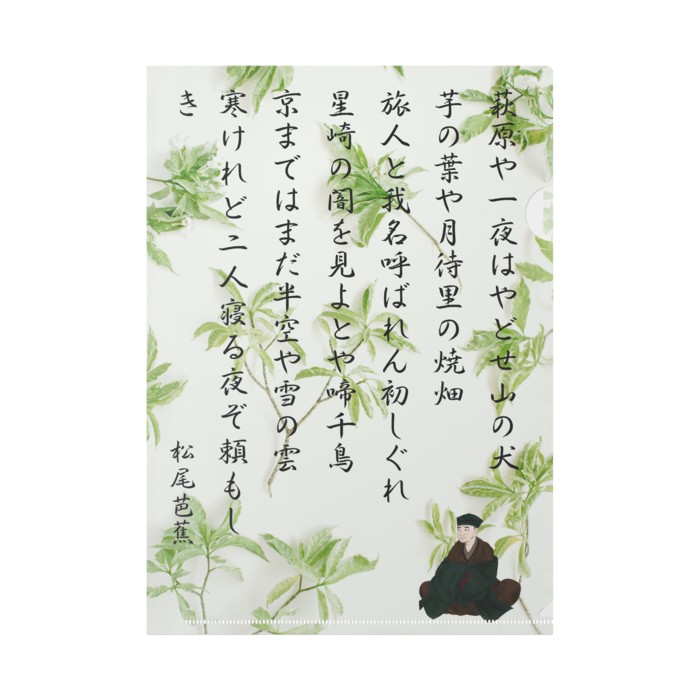 萩原や一夜はやどせ山の犬
芋の葉や月待里の焼畑
旅人と我名呼ばれん初しぐれ
星崎の闇を見よとや啼千鳥
京まではまだ半空や雪の雲
寒けれど二人寝る夜ぞ頼もし
き
松尾芭蕉